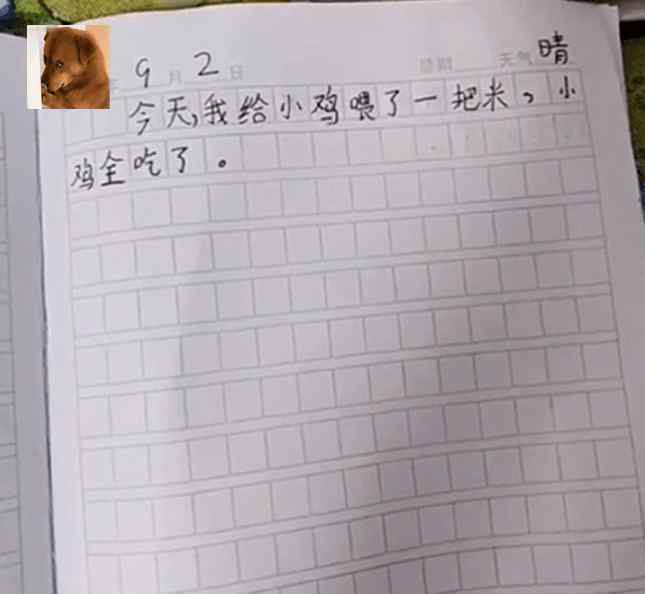 9月2日 星期 天气 晴
今天,我给小鸡喂了一把米,小
鸡全吃了。